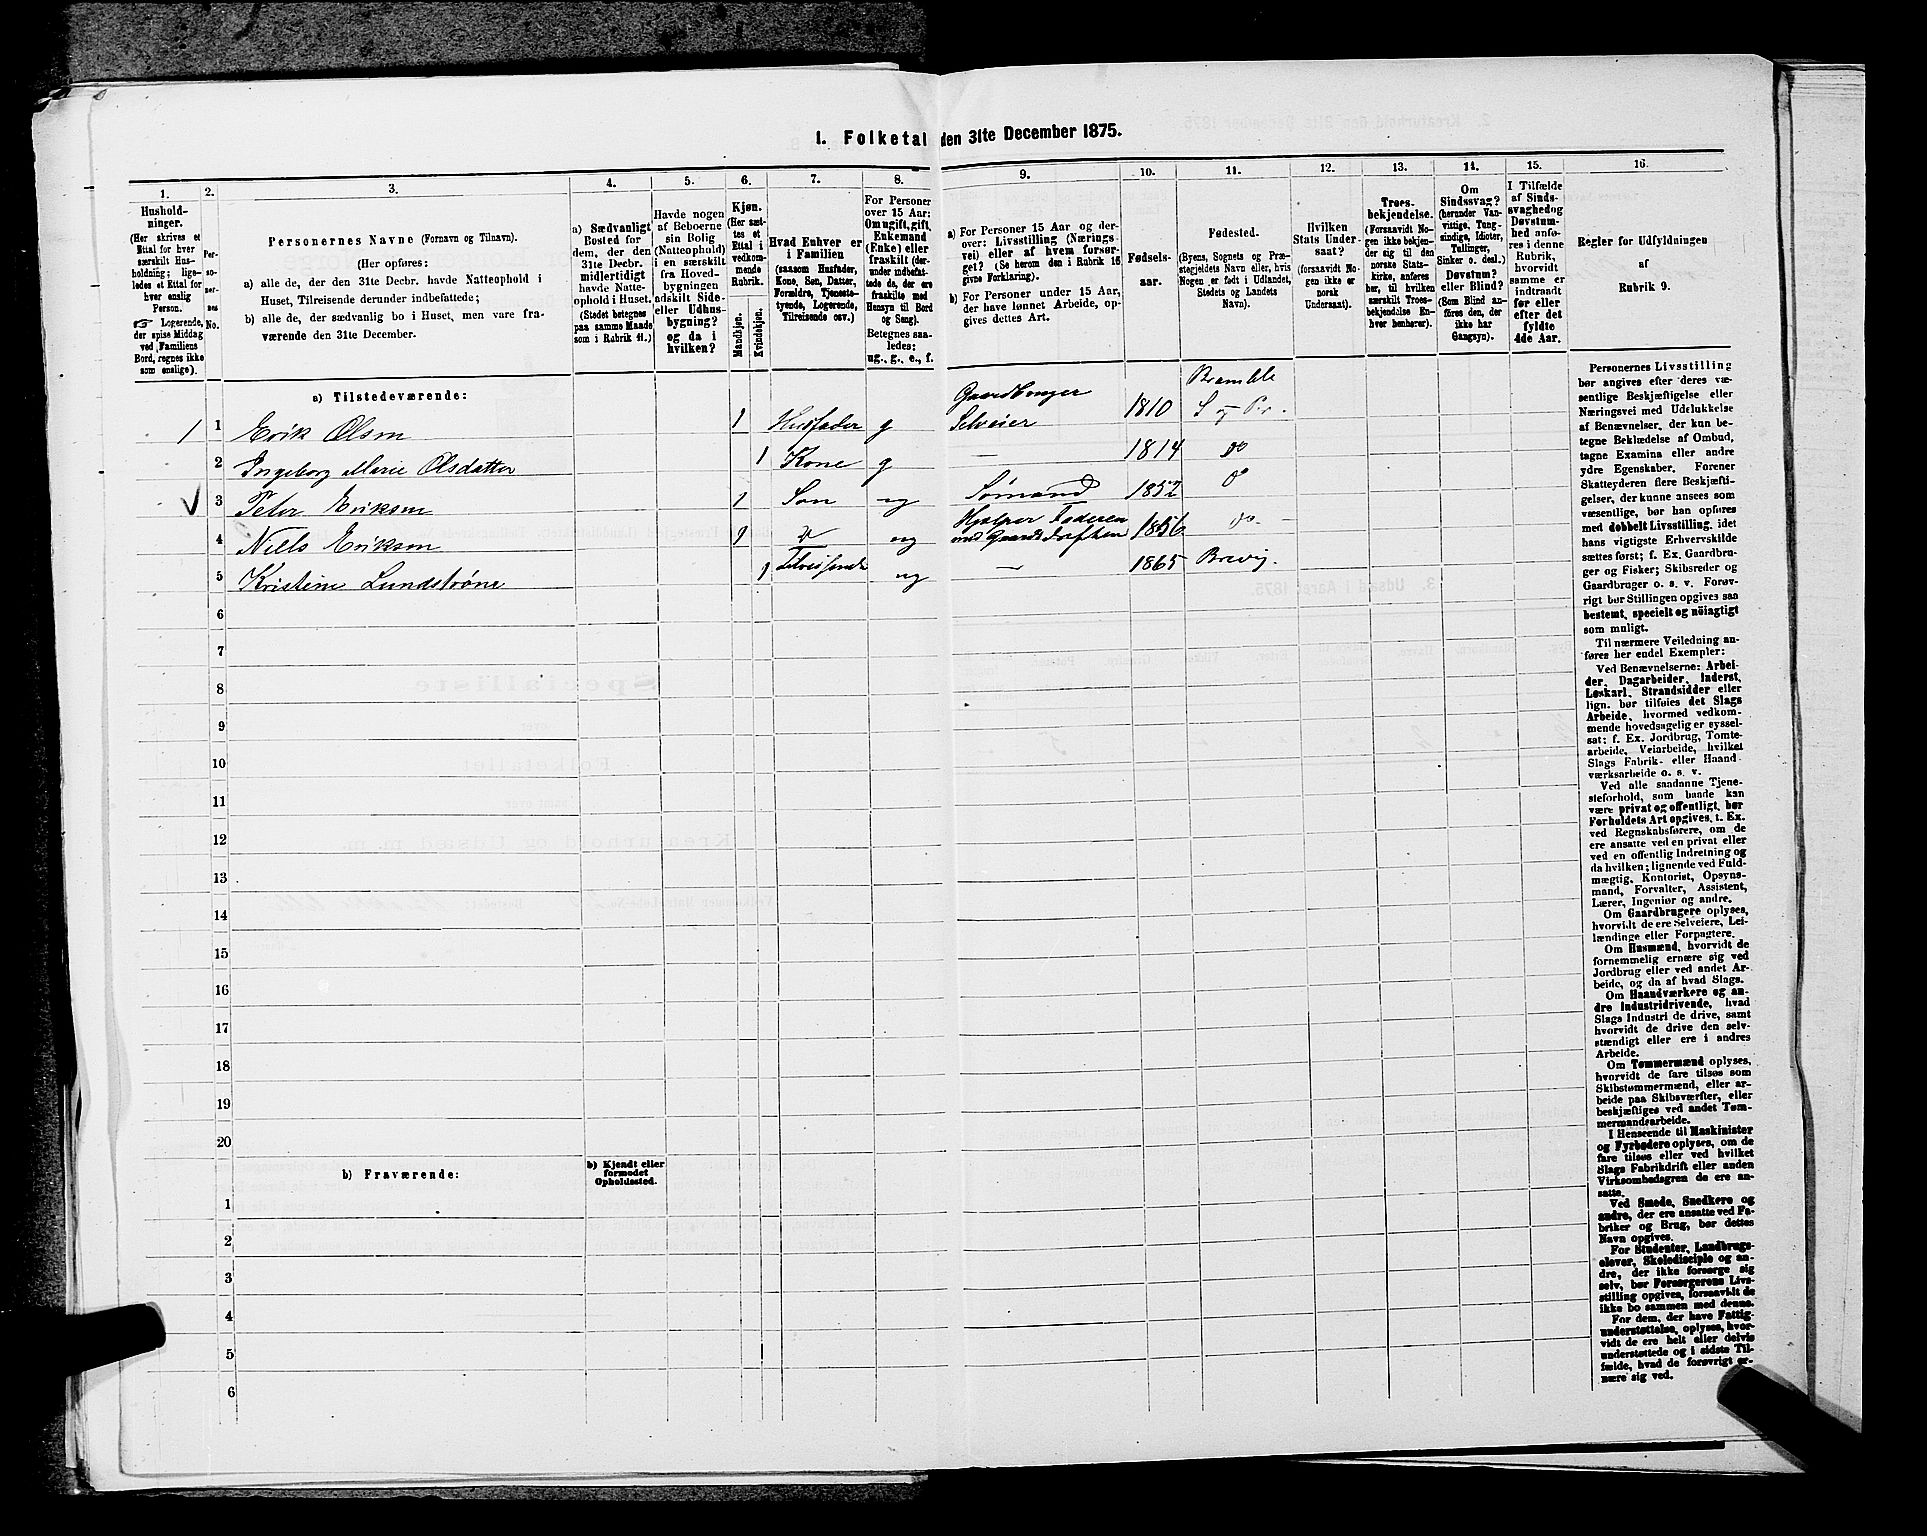 1. Folketal den 31te December 1875.
1.
2.
3.
4.
5.
6.
7.
8.
9.
10.
11.
12.
13.
14.
15.
16.
Hushold-
ninger.
(Her skrives et
Ettal for hver
særskilt Hus-
holdning; lige-
ledes et Ettal for
hver enslig
Person.
☞ Logerende,
der spise Middag
ved Familiens
Bord, regnes ikke
som enslige).
Per-
so-
ner-
nes
No.
Personernes Navne (Fornavn og Tilnavn).
(Her opføres:
a) alle de, der den 31te Decbr. havde Natteophold i
Huset, Tilreisende derunder indbefattede;
b) alle de, der sædvanlig bo i Huset, men vare fra-
værende den 31te December.
a) Sædvanligt
Bosted for
dem, der den
31te Decbr.
midlertidigt
havde Natte-
ophold i Huset.
(Stedet betegnes
paa samme Maade
som i Rubrik 11.)
Havde nogen
af Beboerne
sin Bolig
(Natteophold)
i en særskilt
fra Hoved-
bygningen
adskilt Side-
eller Udhus-
bygning?
og da i
hvilken?
Kjøn.
(Her sæt-
tes et
Ettal i
vedkom-
mende
Rubrik.
Mandkjøn.
Kvindekjøn.
Hvad Enhver er
i Familien
(saasom Husfader,
Kone, Søn, Datter,
Forældre, Tjeneste-
tyende, Logerende,
Tilreisende osv.)
For Personer
over 15 Aar:
Om ugift, gift,
Enkemand
(Enke) eller
fraskilt (der-
under indbefat-
tede de, der ere
fraskilte med
Hensyn til Bord
og Seng).
Betegnes saa-
ledes:
ug., g., e., f.
a) For Personer 15 Aar og der-
over: Livsstilling (Nærings-
vei) eller af hvem forsør-
get? (Se herom den i Rubrik 16
givne Forklaring).
b) For Personer under 15 Aar,
der have lønnet Arbeide, op-
gives dettes Art.
Fødsels-
aar.
Fødested.
(Byens, Sognets og Præ-
stegjeldets Navn eller, hvis
Nogen er født i Udlandet,
Stedets og Landets
Navn).
Hvilken
Stats Under-
saat?
(forsaavidt No-
gen ikke er
norsk
Undersaat).
Troes-
bekjendelse.
(Forsaavidt No-
gen ikke bekjen-
der sig til den
norske Stats-
kirke, anføres
her, til hvilken
særskilt Troes-
bekjendelse En-
hver henhører).
Om
Sindssvag?
(herunder Van-
vittige, Tung-
sindige, Idioter,
Tullinger,
Sinker o. desl.)
Døvstum?
eller Blind?
(Som Blind an-
føres den, der
ikke har
Gangsyn).
I Tilfælde
af Sinds-
svaghed og
Døvstum-
hed anfø-
res i denne
Rubrik,
hvorvidt
samme er
indtraadt
før eller
efter det
fyldte
4de Aar.
Regler for Udfyldningen
af
Rubrik 9.
a) Tilstedeværende:
1 1 Erik Olsen 1 Husfader g Gaardbruger Selveier 1810 Bramble S og Pr.
2 Ingeborg Marie Olsdatter 1 Kone g — 1814 do
3 Peter Eriksen 1 Søn ug Sømand 1852 do
4 Niels Eriksen 1 do ug Hjælper Faderen med Gaardsdriften 1856 do
5 Kristine Lundstrøne 1 Tilreisende ug — 1865 Brevig.
6
7
8
9
10
11
12
13
14
15
16
17
18
19
20
b) Fraværende:
b) Kjendt eller
formodet
Opholdssted.
1
2
3
4
5
6
Personernes Livsstilling
bør angives efter deres væ-
sentlige Beskjæftigelse eller
Næringsvei med Udelukkelse
af Benævnelser, der kun be-
tegne Beklædelse af Ombud,
tagne Examina eller andre
ydre Egenskaber. Forener
Skatteyderen flere Beskjæfti-
gelser, der kunne ansees som
væsentlige, bør han opføres
med dobbelt Livsstilling, idet
hans vigtigste Erhvervskilde
sættes først; f. Ex. Gaardbru-
ger og Fisker; Skibsreder og
Gaardbruger o. s. v. Forøv-
rigt bør Stillingen opgives saa
bestemt, specielt og nøiagtigt
som muligt.
Til nærmere Veiledning an-
føres her endel Exempler:
Ved Benævnelserne: Arbei-
der, Dagarbeider, Inderst,
Løskarl, Strandsidder eller
lign. bør tilføies det Slags
Arbeide, hvormed vedkom-
mende hovedsagelig er syssel-
sat; f. Ex. Jordbrug, Tomte-
arbeide, Veiarbeide, hvilket
Slags Fabrik- eller Haand-
værksarbeide o. s. v.
Ved alle saadanne Tjene-
steforhold, som baade kan
være privat og offentligt, bør
Forholdets Art opgives, t. Ex.
ved Regnskabsførere, om de
ere ansatte ved en privat eller
ved en offentlig Indretning og
da hvilken; lignende ved Fuld-
mægtig, Kontorist, Opsyns-
mand, Forvalter, Assistent,
Lærer, Ingeniør og andre.
Om Gaardbrugere oplyses,
hvorvidt de ere Selveiere, Lei-
lændinge eller Forpagtere.
Om Husmænd, hvorvidt de
fornemmelig ernære sig ved
Jordbrug eller ved andet Ar-
beide, og da af hvad Slags.
Om Haandværkere og an-
dre Industridrivende, hvad
Slags Industri de drive, samt
hvorvidt de drive den selv-
stændigt eller ere i andres
Arbeide.
Om Tømmermænd oplyses,
hvorvidt de fare tilsøs som
Skibstømmermænd, eller ar-
beide paa Skibsværfter, eller
beskjæftiges ved andet Tøm-
mermandsarbeide.
I Henseende til Maskinister
og Fyrbødere oplyses, om de
fare tilsøs eller ved hvilket
Slags Fabrikdrift eller anden
Virksomhedsgren de ere an-
satte.
Ved Smede, Snedkere og
andre, der ere ansatte ved Fa-
briker og Brug, bør dettes
Navn opgives.
For Studenter, Landbrugs-
elever, Skoledisciple og an-
dre, der ikke forsørge sig
selv, bør Forsørgerens Livs-
stilling opgives, forsaavidt de
ikke bo sammen med denne.
For dem, der have Fattig-
understøttelse, oplyses, hvor-
vidt de ere helt eller delvis
understøttede og i sidste Til-
fælde, hvad de forøvrigt er-
nære sig ved.